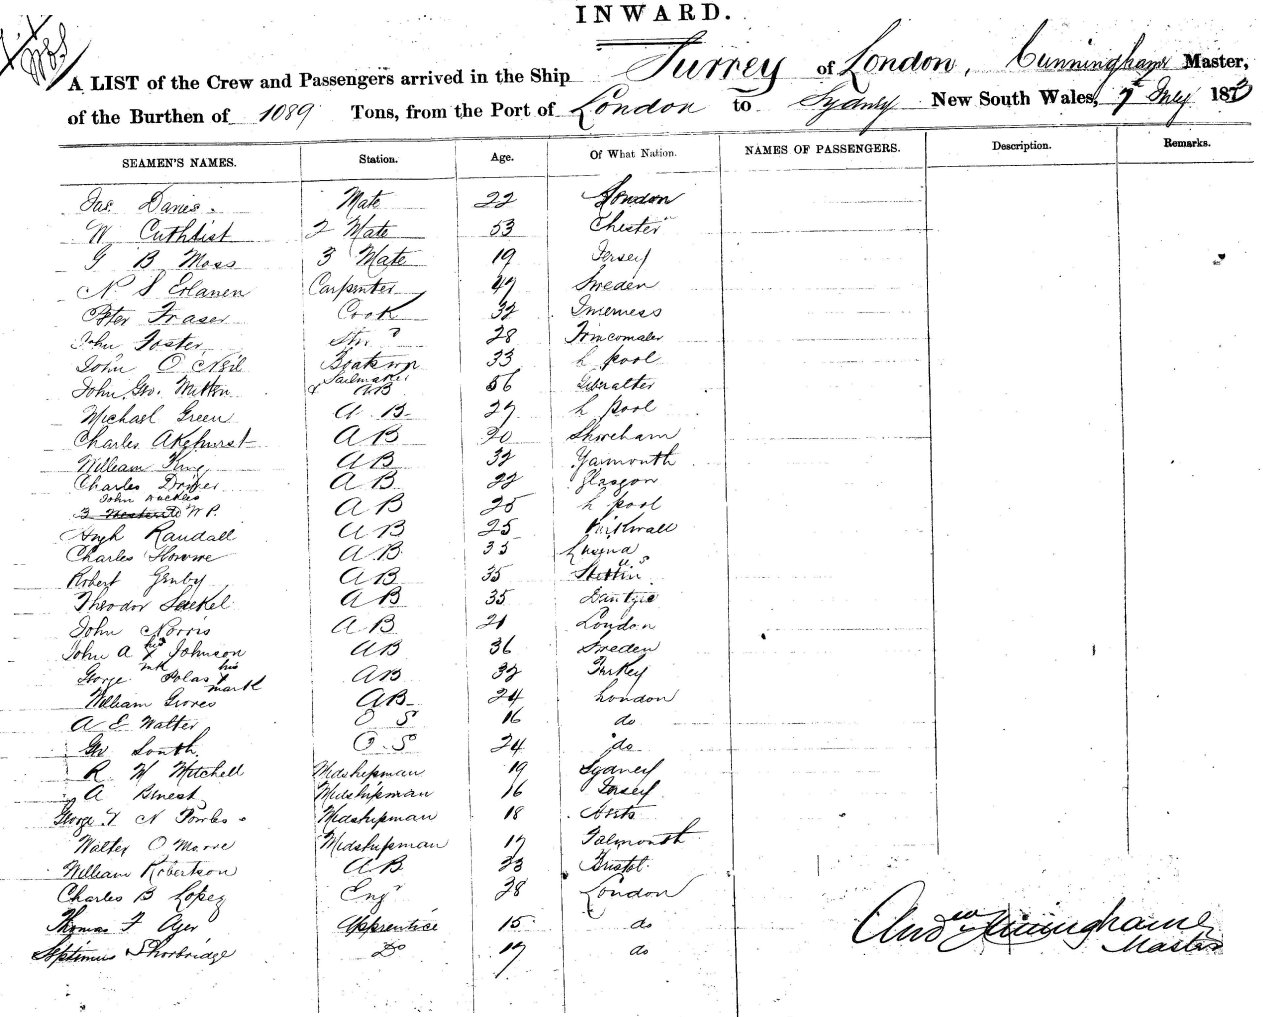 INWARD.
A LIST of the Crew and Passengers arrived in the Ship Surrey of London, Cunningham Master,
of the Burthen of 1089 Tons, from the Port of London to Sydney New South Wales, 7 July 1873
SEAMEN'S NAMES. Station. Age. Of What Nation. NAMES OF PASSENGERS. Description. Remarks.
Jas. Davies. Mate 22 London
W Cuthbist 2 Mate 53 Chester
G B Moss 3 Mate 19 Jersey
N. S Erlanen Carpenter 47 Sweden
Peter Fraser Cook 32 Inverness
John Foster 28 Trincomalee
John O'Neil Boatswn 33 L pool
John Geo. Mutton Sailmaker & AB 56 Gibralter
Michael Green A B 27 L pool
Charles Akehurst A B 30 Shoreham
William King A B 32 Yarmouth
Charles Driver A B 22 Glasgow
John Nuckles W P. A B 25 L pool
Hugh Randall A B 25 Kirkwall
Charles A B 35
Robert A B 35 Stettin
Theodor Saekel A B 35 Dantzic
John Norris A B 21 London
John A his x mk Johnson AB 36 Sweden
George Polas his x mark AB 32 Turkey
William Groves AB 24 London
A E Walter O S 16 do
Geo South. O. S 24 do
R. W Mitchell Midshipman 19 Sydney
A Benest Midshipman 16 Jersey
George N Fowles Midshipman 18 Herts
Walter O Moore Midshipman 17 Falmouth
William Robertson A B 23 Bristol
Charles B Lopez Engr 28 London
Thomas F Ager Apprentice 15 do
Septimus Thorbridge Do 17 do
Andew Cunningham
Master